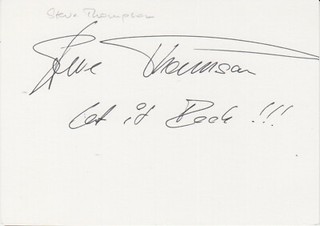 Steve Thompson
Steve Thompson
Let it Rock !!!